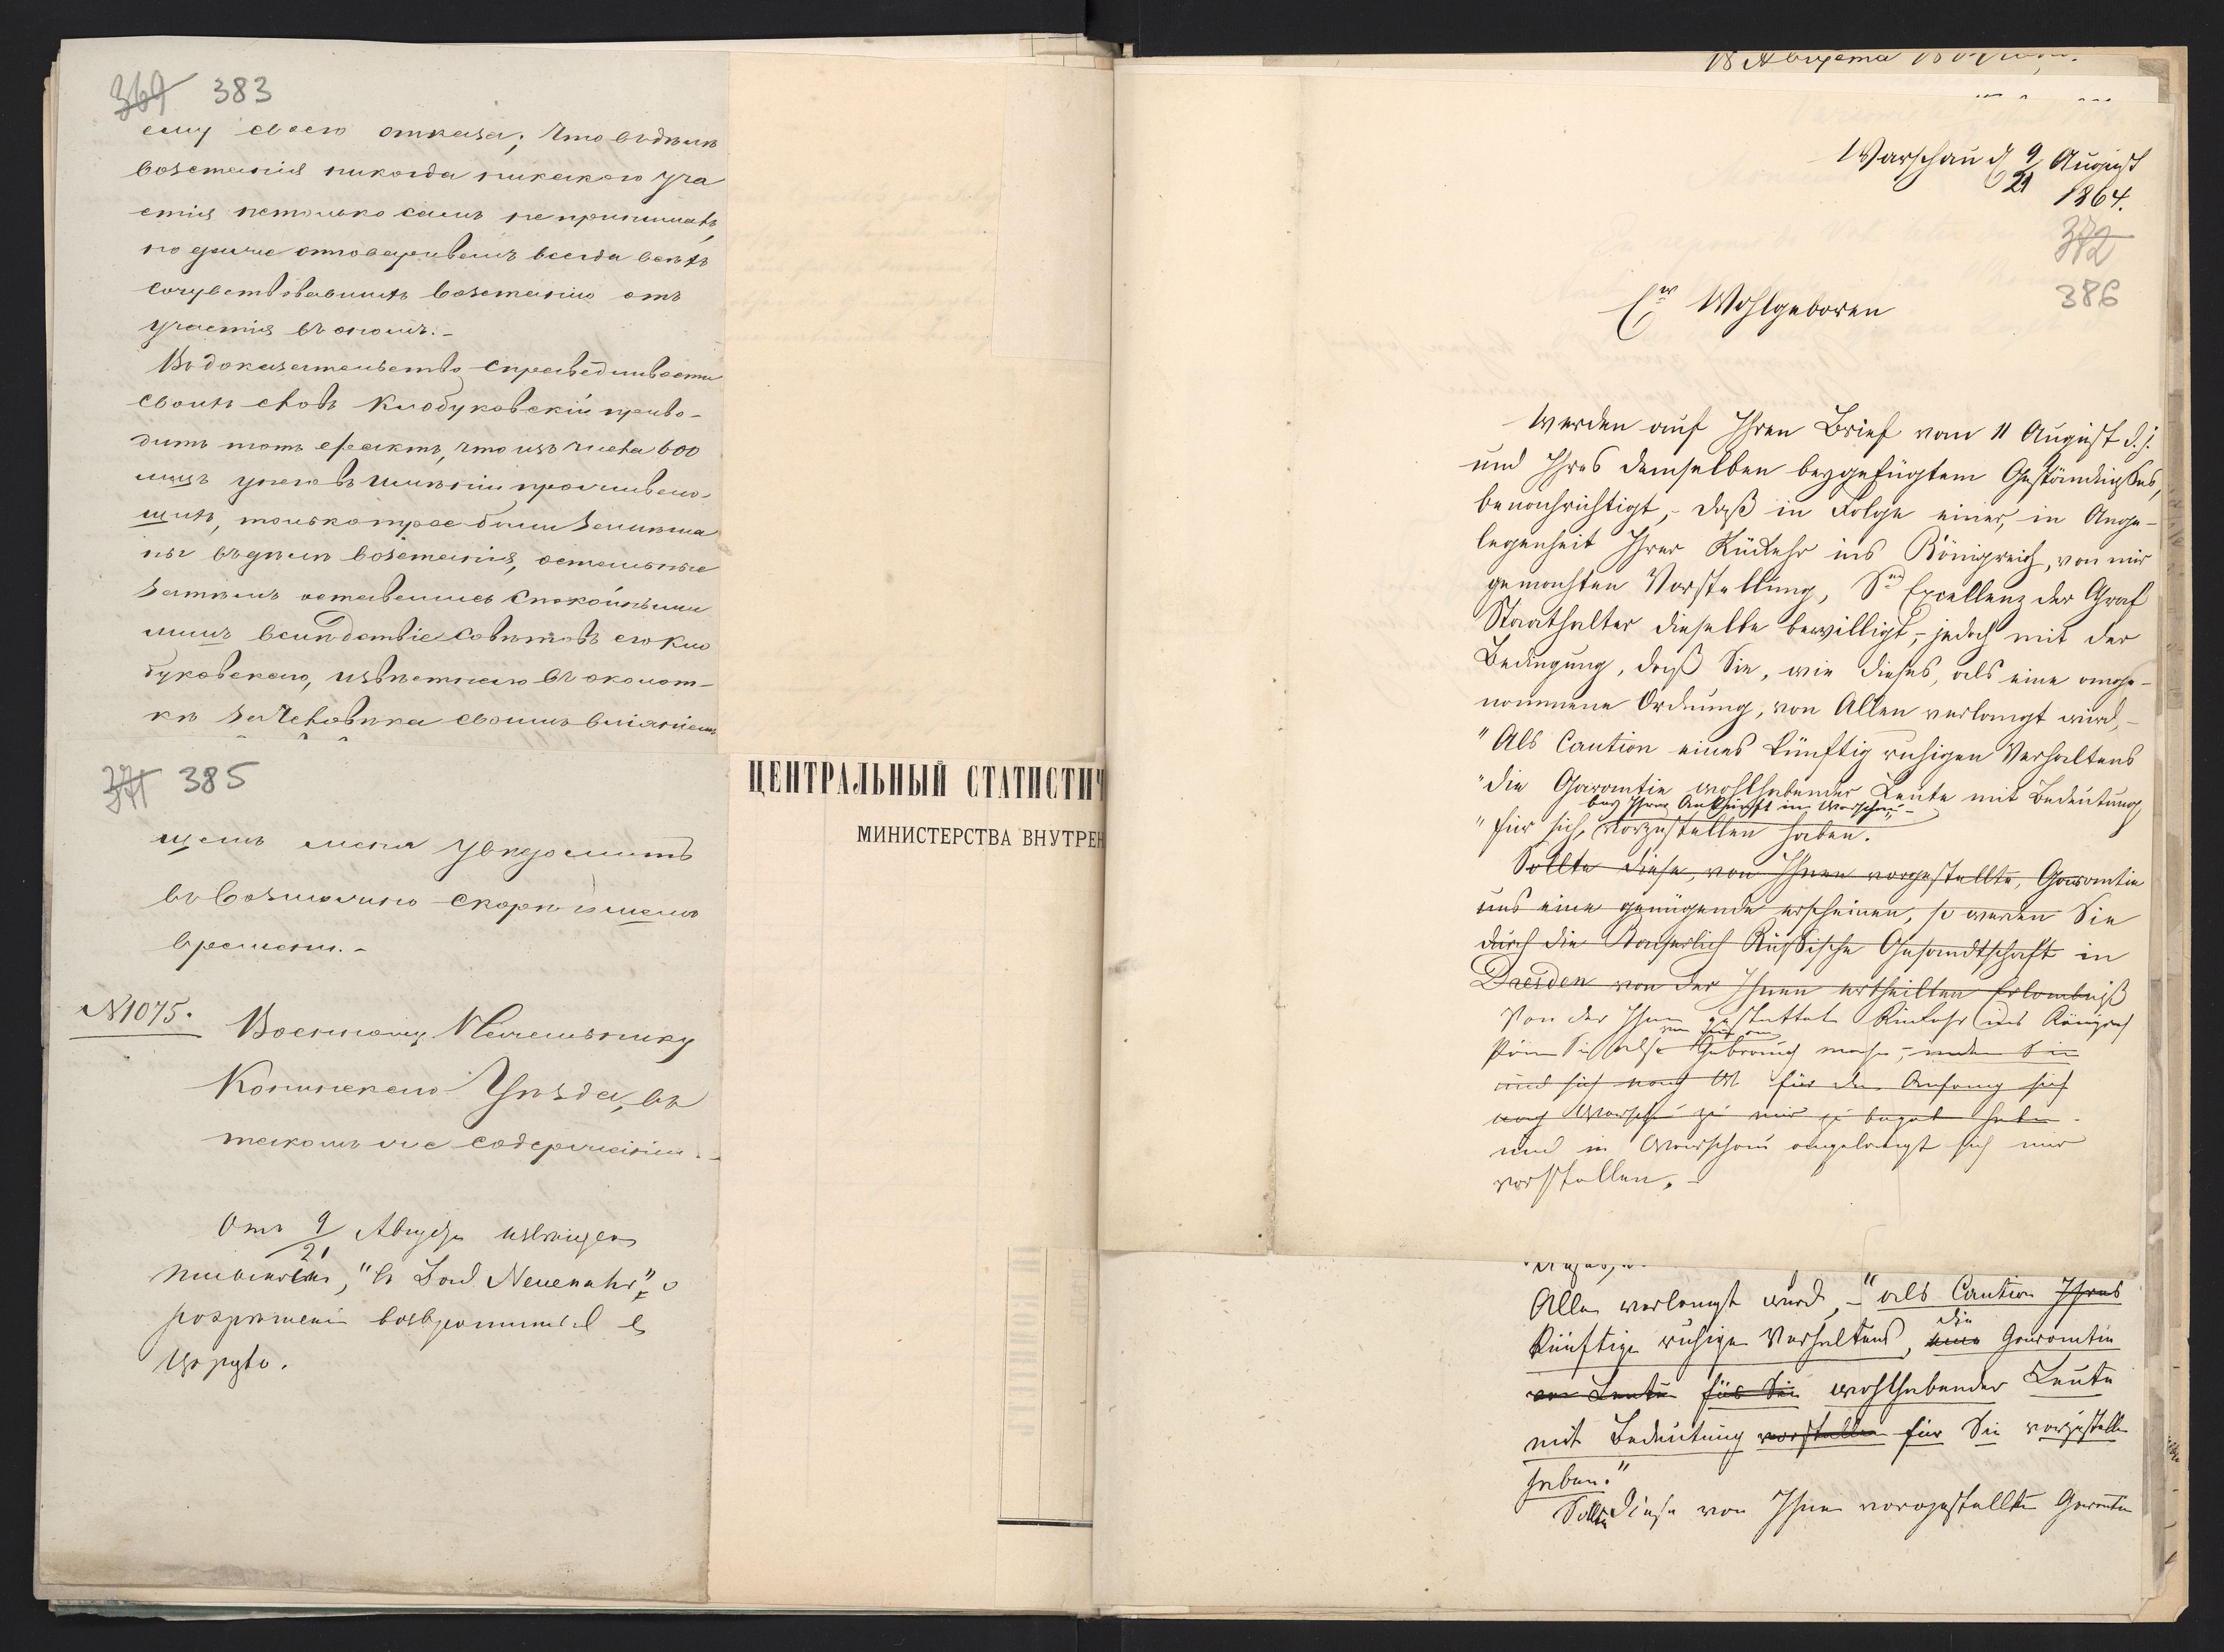 369 383
ему своего отказа; что въ дѣлѣ
возстанія никогда никакого уча
стія не только самъ не принималъ,
но даже отговаривалъ всегда всѣхъ
сочувствовавшихъ возстанію отъ
участія въ ономъ.-
Въ доказательство справедливости
своихъ словъ Клобуковскій приво-
дитъ тотъ фактъ, что изъ числа 600
лицъ у него въ имѣніи проживаю-
щихъ, только трое были замѣша
ны въ дѣлѣ возстанія, остальные
затѣмъ оставались спокойными
лишь вслѣдствіе совѣтовъ его Кло
буковскаго, извѣстнаго въ околот-
кѣ за человѣка своимъ вліяніемъ
371 385
щемъ меня увѣдомить
въ возможно скорѣйшемъ
времени.-
N 1075.
Военному Начальнику
Конинскаго Уѣзда, въ
такомъ же содержаніи.-
Отъ 9/21 Августа извѣщенъ
письмомъ, "въ Bad Neuenahr", о
разрѣшеніи возвратиться въ
Царство.
ЦЕНТРАЛЬНЫЙ СТАТИСТИЧ
МИНИСТЕРСТВА ВНУТРЕН
18 Августа
Warschau d 9/21 August
1864.
372
386
Ew Wohlgeboren
werden auf Ihren Brief vom 11 August d. J.
und Ihres demselben beygefügtem Geständnißes,
benachrichtigt,- daß in Folge einer, in Ange-
legenheit Ihrer Rükkehr ins Königreich, von mir
gemachten Vorstellung, Se Excellenz der Graf
Staathalter dieselbe bewilligt,- jedoch mit der
Bedingung, daß Sie, wie dieses, als eine ange-
nommene Ordnung, von Allen verlangt wird,-
"Als Caution eines künftig ruhigen Verhaltens
"die Garantie wohlhabender Leute mit Bedeutung
bey Ihrer Ankunft in Warschau
"für sich, vorzustellen haben.
Sollte diese, von Ihnen vorgestellte, Garantie
uns eine genügende erscheinen, so werden Sie
durch die Kayserlich Rußische Gesandtschaft in
Dresden von der Ihnen ertheilten Erlaubniß
Von der Ihnen gestattet Rükkehr ins Königreich
können Sie also Gebrauch machen,- indem Sie
und sich nach für den Anfang sich
nach Warschau zu mir zu begeben haben.
und in Warschau angelangt sich mir
vorstellen.-
Allen verlangt wird,- "als Caution Ihres
die
künftige ruhigen Verhaltens, eine Garantie
von Leuten für Sie wohlhabender Leute
mit Bedeutung vorstellen für Sie vorzustellen
haben."
Sollte diese von Ihnen vorgestellte Garantie